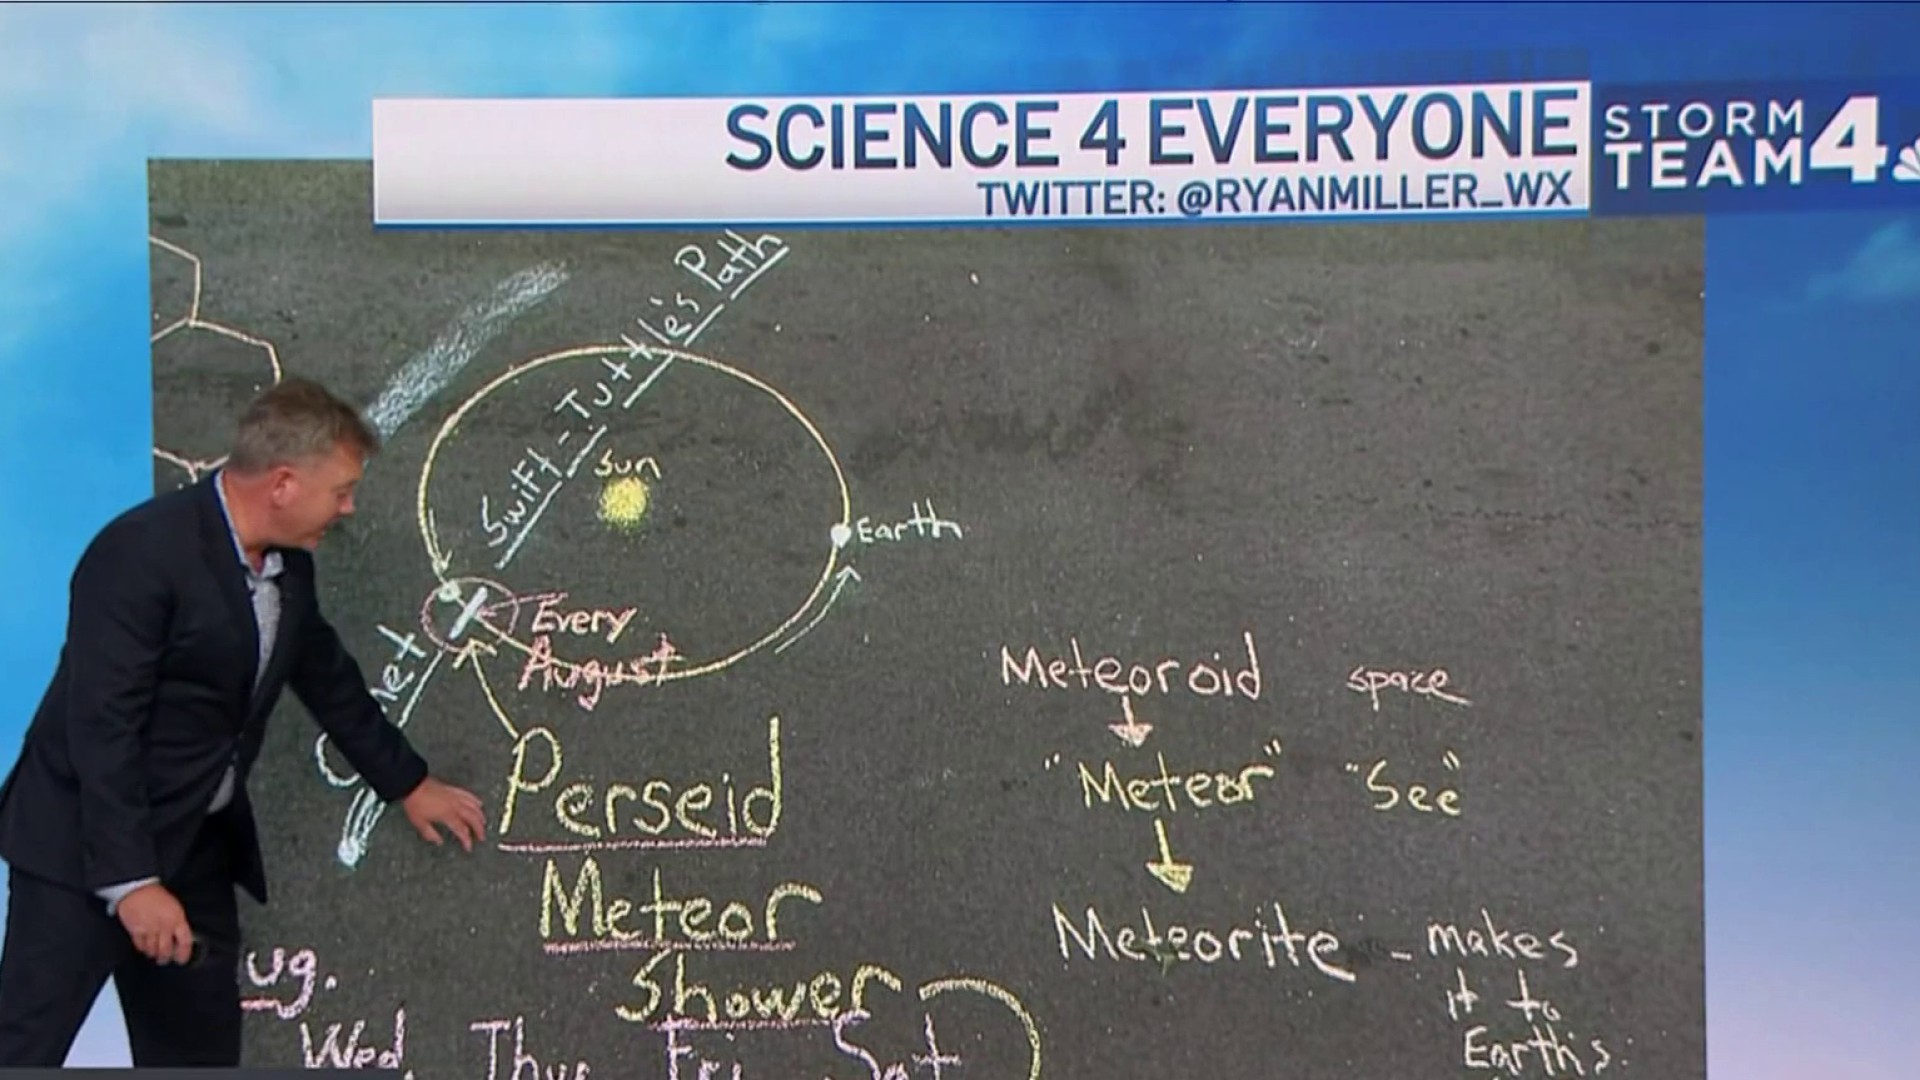 SCIENCE 4 EVERYONE
TWITTER: @RYANMILLER_WX
STORM
TEAM 4
Swift-Tuttle's Path
Sun
Earth
Every
August
Perseid
Meteor
Shower
Wed. Thur Fri Sat
Meteoroid space
"Meteor" "See"
Meteorite - makes
it to
Earth's